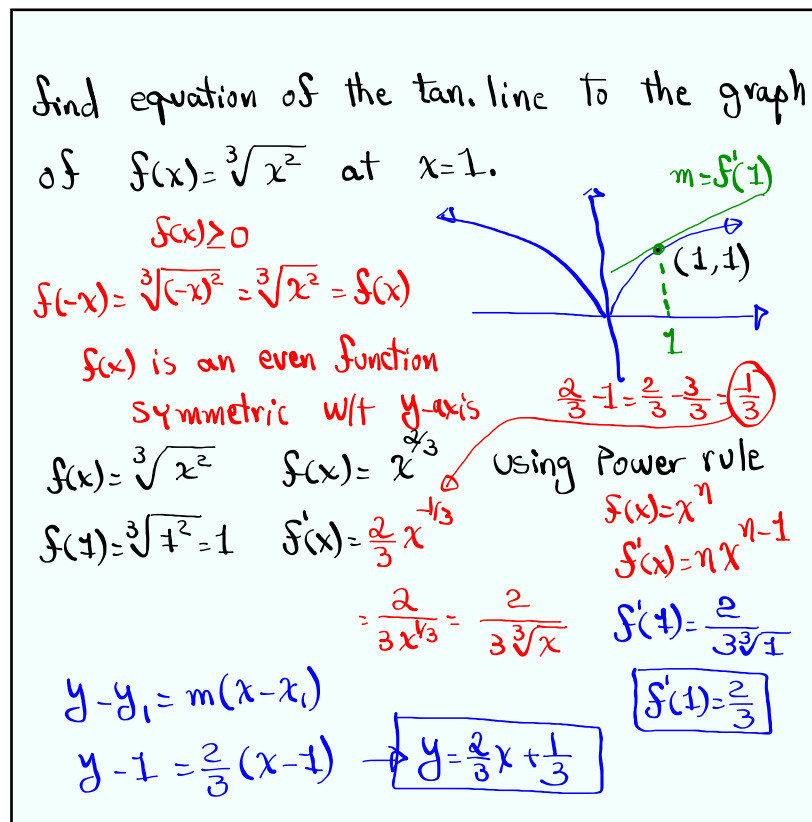 find equation of the tan. line to the graph
of f(x) = ∛x² at x=1.
m=f'(1)
f(x)≥0
(1,1)
f(-x) = ∛(-x)² = ∛x² = f(x)
1
f(x) is an even function
symmetric w/t y-axis
2/3 - 1 = 2/3 - 3/3 = -1/3
f(x) = ∛x² f(x) = x^(2/3) using Power rule
f(x) = x^n
f(1) = ∛1² = 1 f'(x) = 2/3 x^(-1/3)
f'(x) = n x^(n-1)
= 2/(3x^(1/3)) = 2/(3∛x)
f'(1) = 2/(3∛1)
f'(1) = 2/3
y - y₁ = m(x - x₁)
y - 1 = 2/3 (x - 1) → y = 2/3 x + 1/3